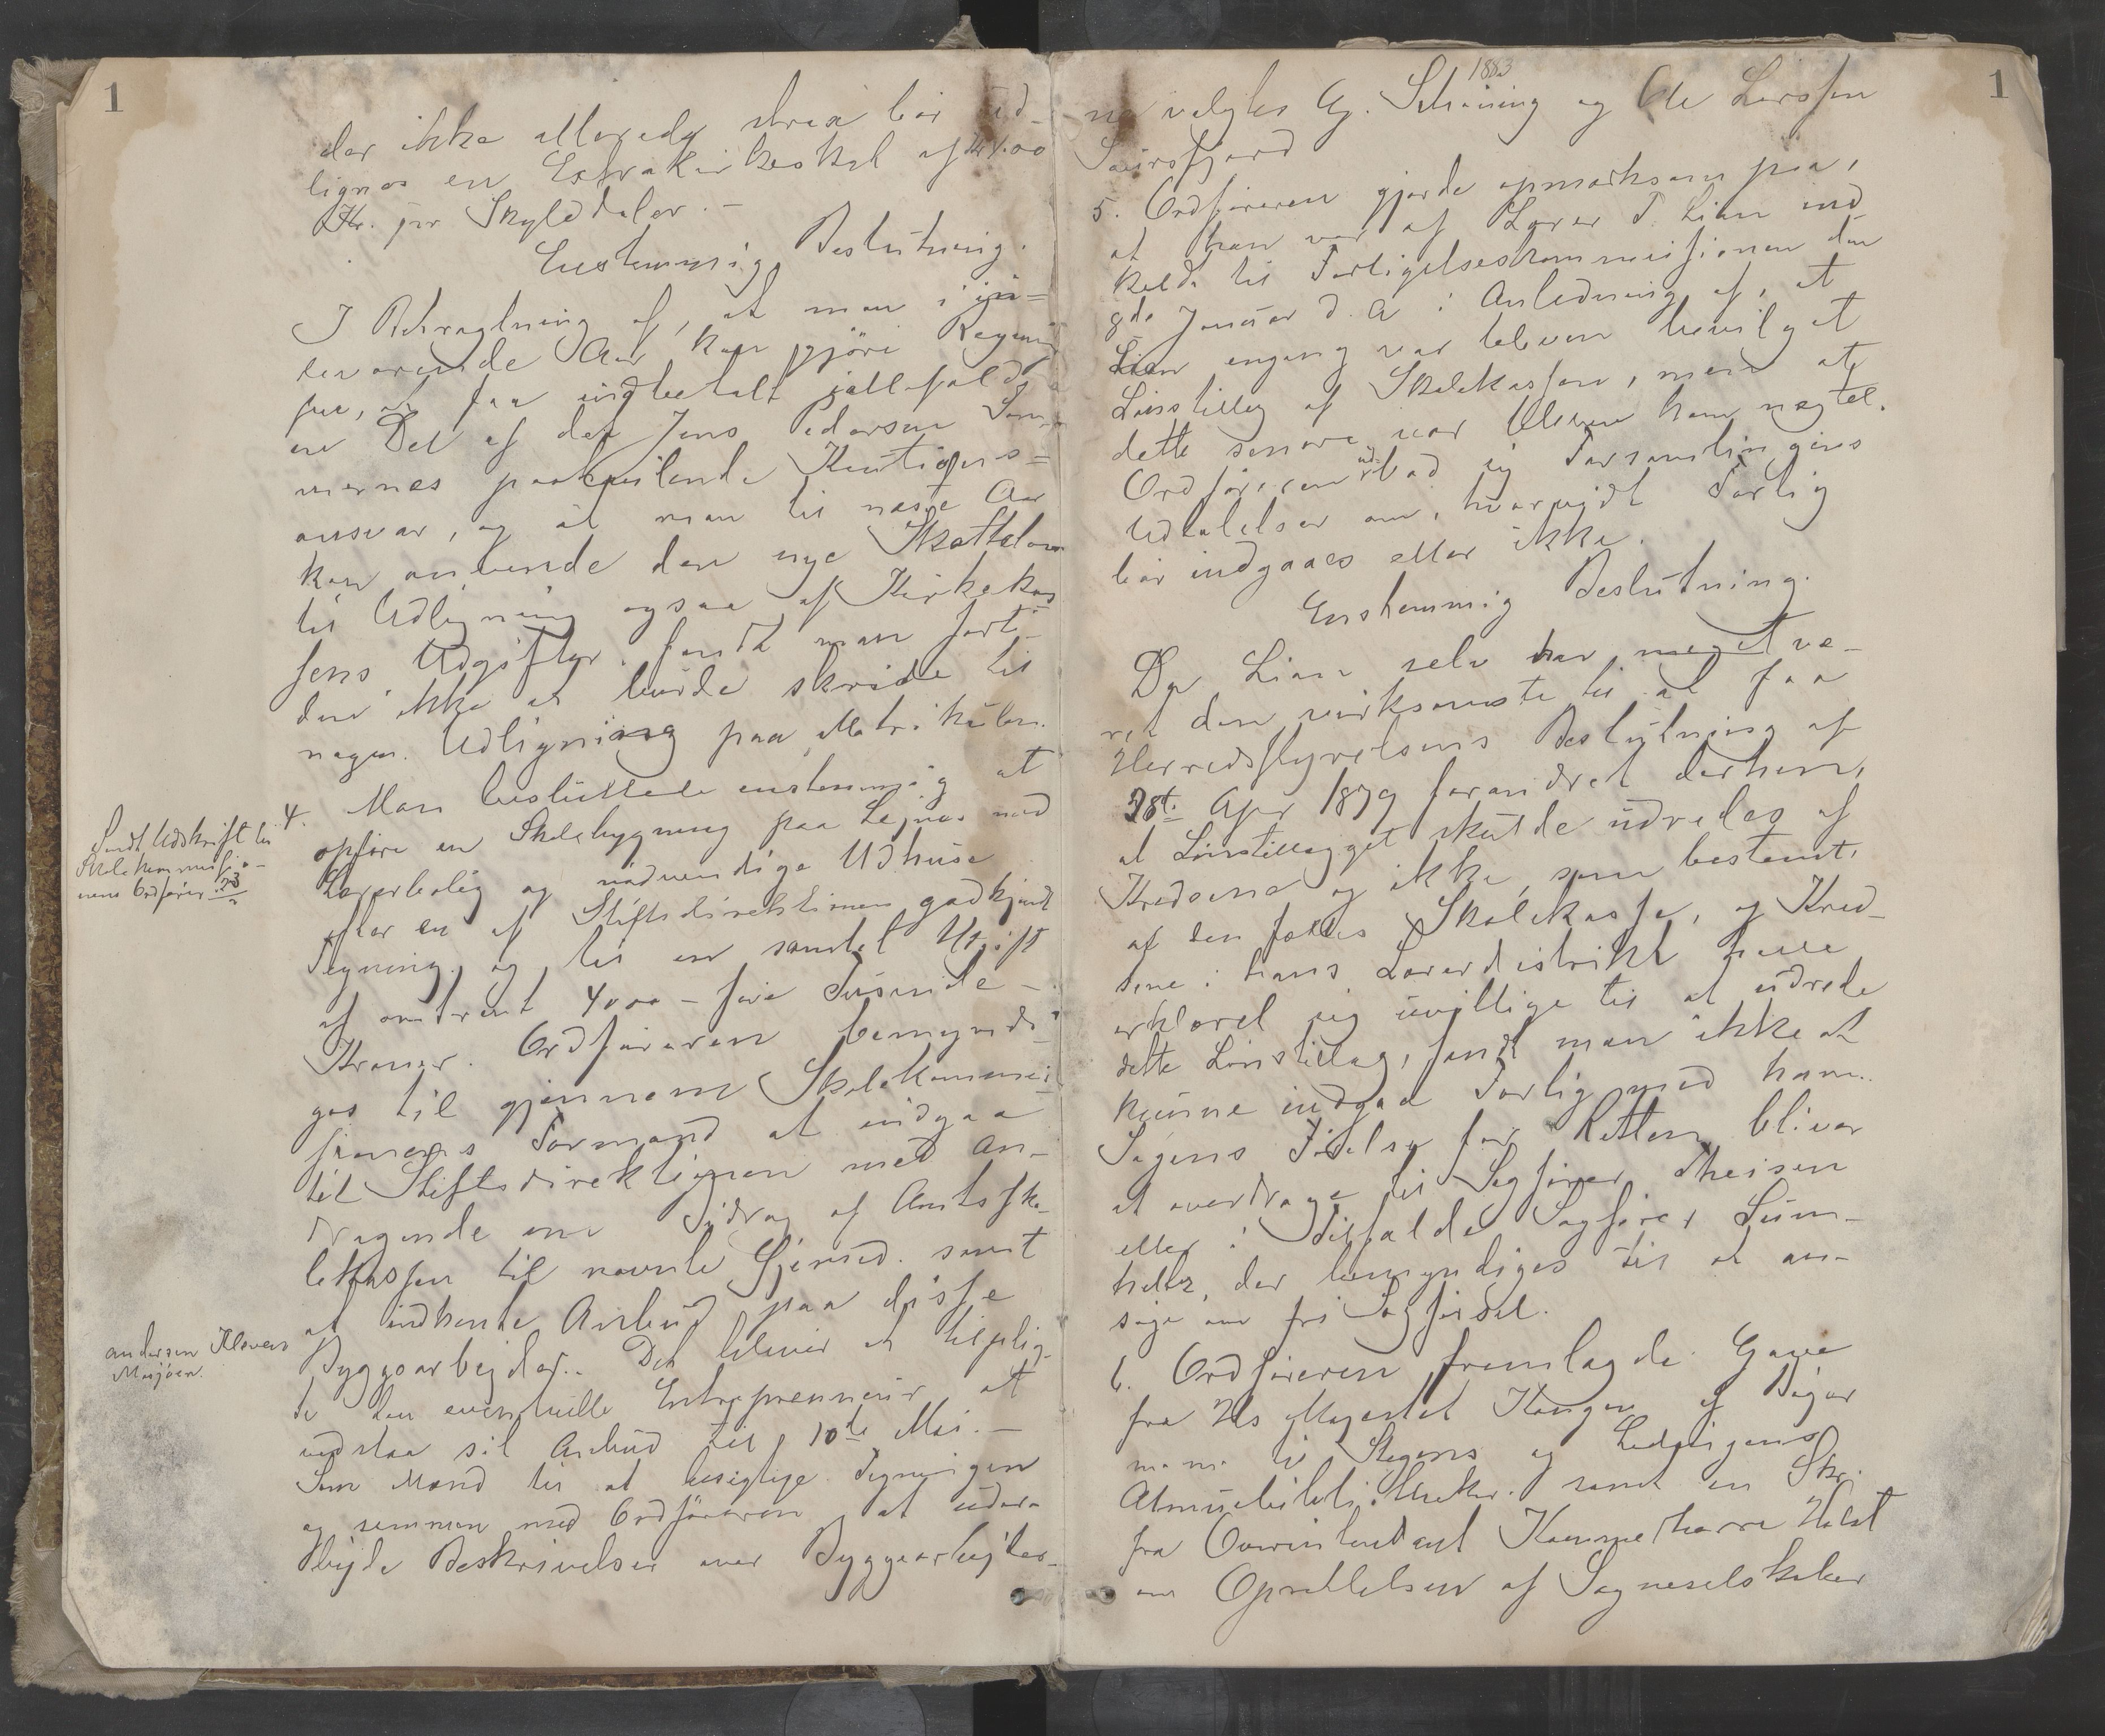 1
der ikke allerede strax bör ud-
lignes en Extrakirkeskat af Kr 1.00
Kr. pr Skylddaler. –
Enstemmig Beslutning.
I Betragtning af, at man i in-
deværende Aar kan gjöre Regning
paa, at faa indbetalt ialfald
en Del af det Jens Pedersen
paahvilende Kautions=
ansvar, og at man til næste Aar
kan anvende den nye Skattelov
til Udligning ogsaa af Kirkekas
sens Udgifter, fandt man forti-
den ikke at burde skride til
nogen Udligning paa Matrikulen.
4. Man besluttede enstemmig at
opföre en Skolebygning paa Leines med
Lærerbolig og nödvendige Udhuse
efter en af Stiftsdirektionen godkjendt
Tegning, og til en samlet Udgift
af omtrent 4000 – fire Tusinde –
Kroner. Ordföreren bemyndi-
ges til gjennem Skolekommis-
sionens Formand at indgaa
til Stiftsdirektionen med An-
dragende om Bidrag af Amtssko-
lekassen til nævnte Öjemed samt
at indhente Anbud paa disse
Byggearbejder. Det bliver at tilplig-
te den eventuelle Entreprenneur at
vedstaa sit Anbud til 10de Mai. –
Som Mænd til at besigtige Tegningen
og sammen med Ordföreren at udar-
bejde Beskrivelser over Byggearbejder-
Sendt Udskrift til
Skolekommissio-
nens Ordförer
Andersen Kleven
Mosjöen.
1
1883
ne valgtes Aj. Schöning og Ole Larssen
5. Ordföreren gjorde opmærksom paa,
at han var af Lærer T. Lian ind-
kaldt til Forligelseskommissionen den
8de Januar d. A i Anledning af, at
Lian engang var bleven bevilget
Lönstillæg af Skolekassen, men at
dette senere var bleven ham nægtet.
Ordföreren udbad sig Forsamlingens
Udtalelser om, hvorvidt Forlig
bör indgaaes eller ikke.
Enstemmig Beslutning.
Da Lian selv har meget væ-
ret den virksomste til at faa
Herredsstyrelsens Beslutning af
28de Apr 1879 forandret derhen,
at Lönstillægget skulde udredes af
Kredsene og ikke, som bestemt,
af den fælles Skolekasse, og Kred-
sene i hans Lærerdistrikt have
erklæret sig uvillige til at udrede
dette Lönstillæg, fandt man ikke at
kunne indgaa Forlig med ham.
Sagens Förelse for Retten bliver
at overdrage til Sagförer Theisen
eller i Tilfælde Sagförer Sum-
, der bemyndiges til at an-
söge om fri Sagförsel.
6. Ordföreren fremlagde Gave
fra Hs Majestæt Kongen af Böger
til Stegens og Ledingens
Almuebibliotheker samt en Skr.
fra Overintendant Kammerherre Holst
om Oprettelsen af Sogneselskaber